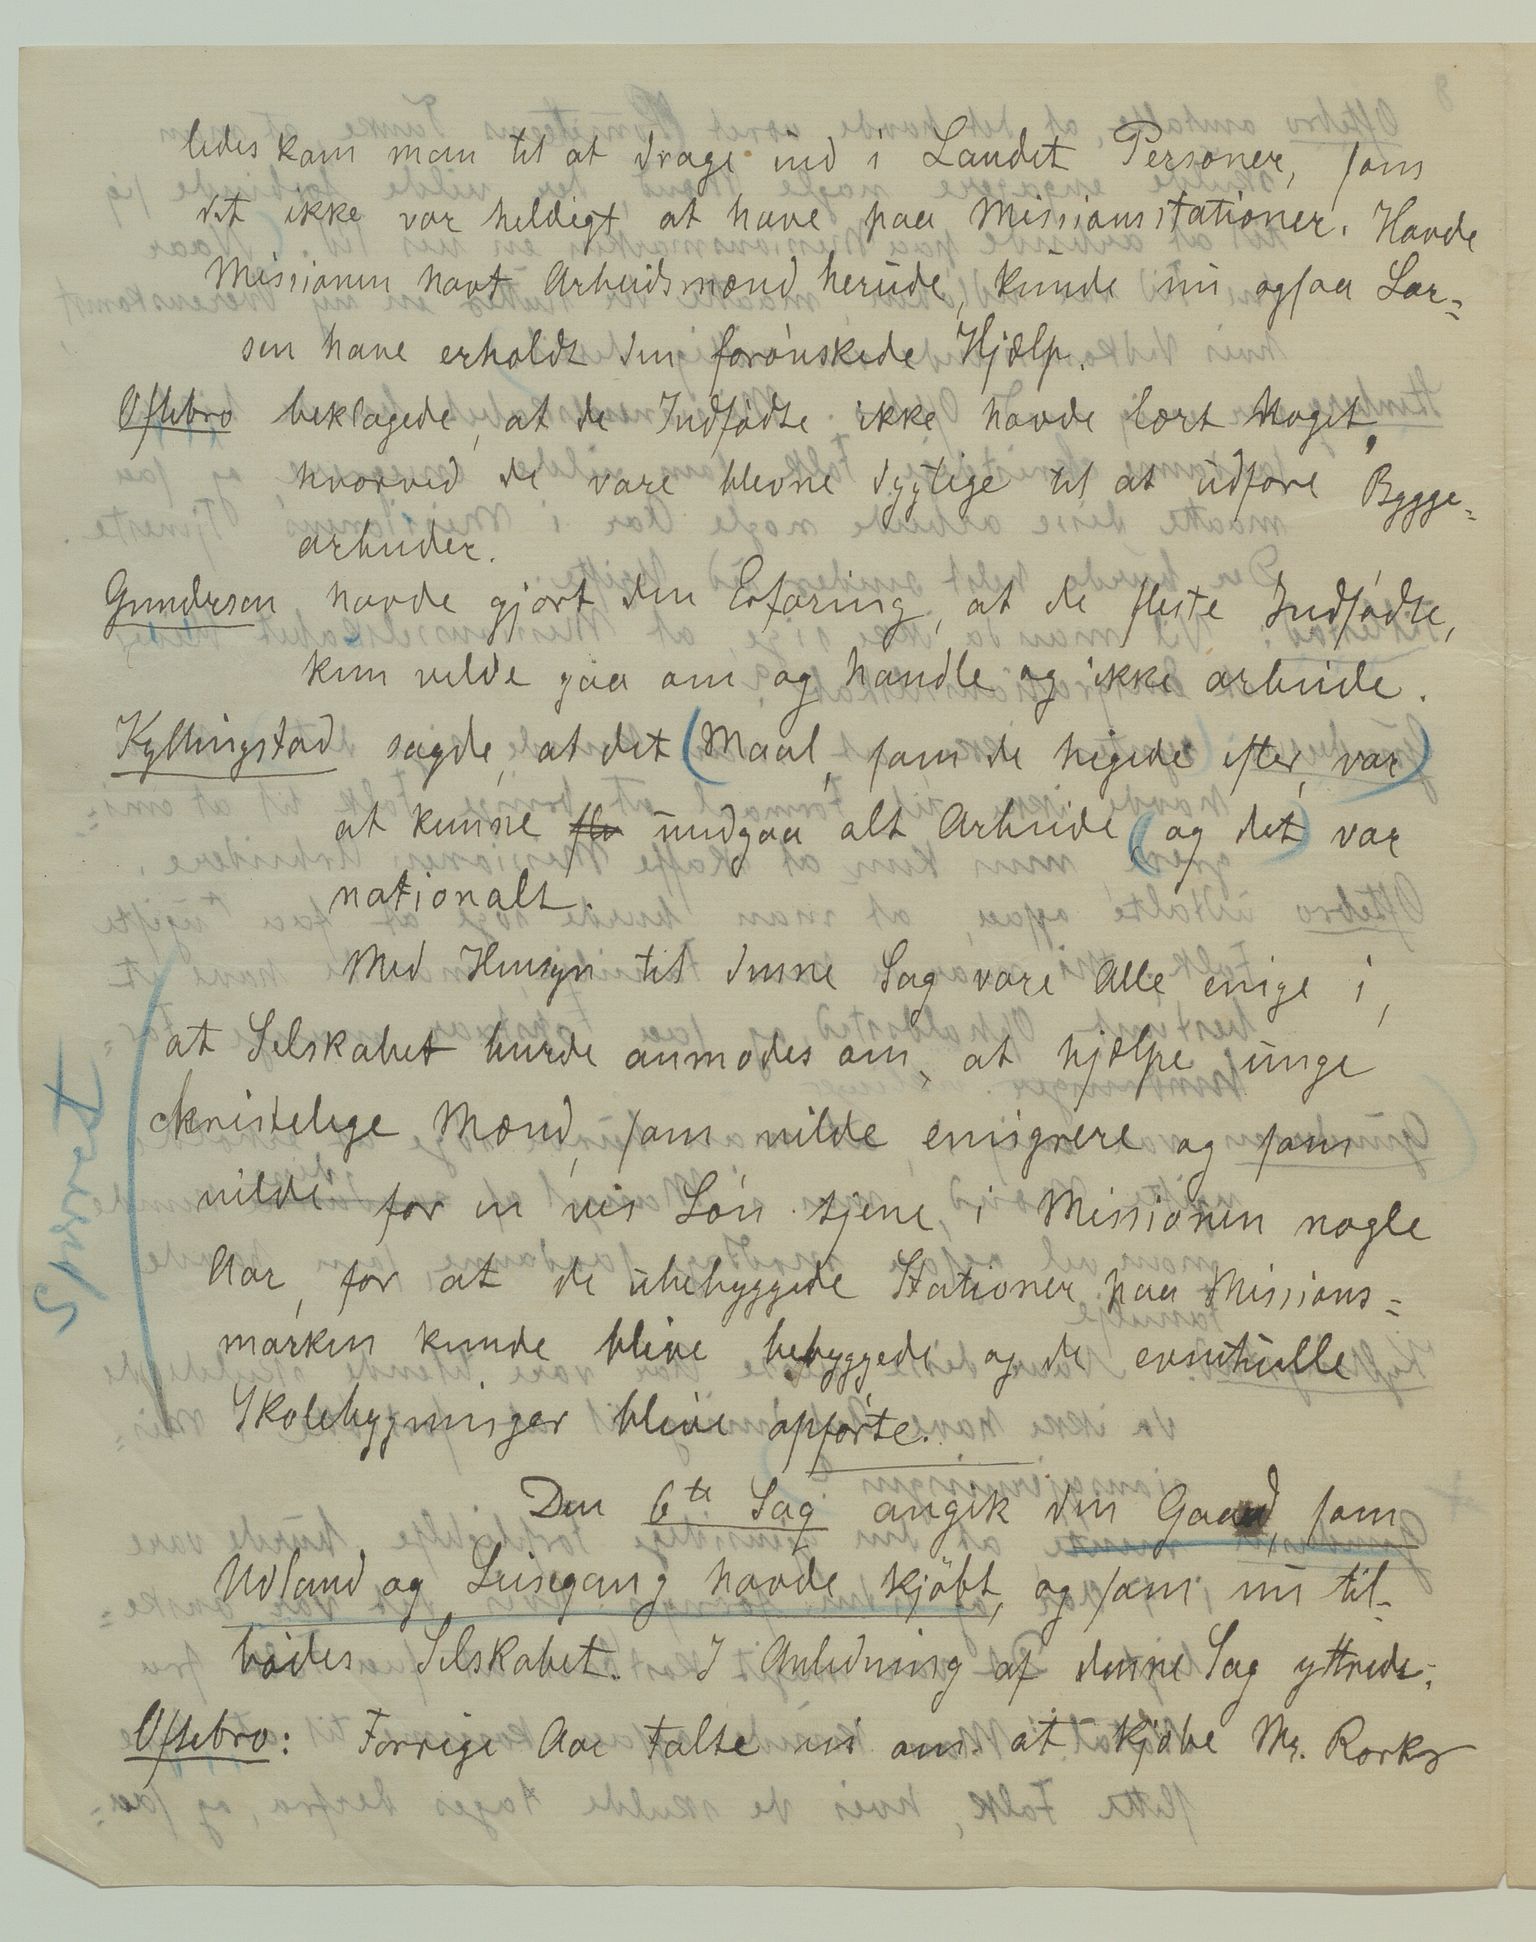 ledes kom man til at drage ind i Landet Personer, som
det ikke var heldigt at have paa Missionsstationer. Havde
Missionen havt Arbeidsmænd herude, kunde nu ogsaa Lar=
sen have erholdt den forønskede Hjælp.
Oftebro beklagede, at de Indfødte ikke havde lært Noget,
hvorved de vare blevne dygtige til at udføre Bygge=
arbeider.
Gundersen havde gjort den Erfaring, at de fleste Indfødte,
kun vilde gaa om og handle og ikke arbeide.
Kyllingstad sagde, at det (Maal, som de higede efter, var)
at kunne undgaa alt Arbeide (og det) var
nationalt.
Med Hensyn til denne Sag vare Alle enige i,
at Selskabet burde anmodes om, at hjælpe unge
christelige Mænd, som vilde emigrere og som
vilde for en vis Løn tjene i Missionen nogle
Aar, for at de ubebyggede Stationer paa Missions=
marken kunde blive bebyggede og de eventuelle
Skolebygninger blive opførte.
Den 6te Sag angik den Gaard, som
Udland og Leisegang havde kjöbt, og som nu til=
bødes Selskabet. I Anledning af denne Sag yttrede:
Oftebro: Forrige Aar talte vi om at kjøbe Mr. Rorks